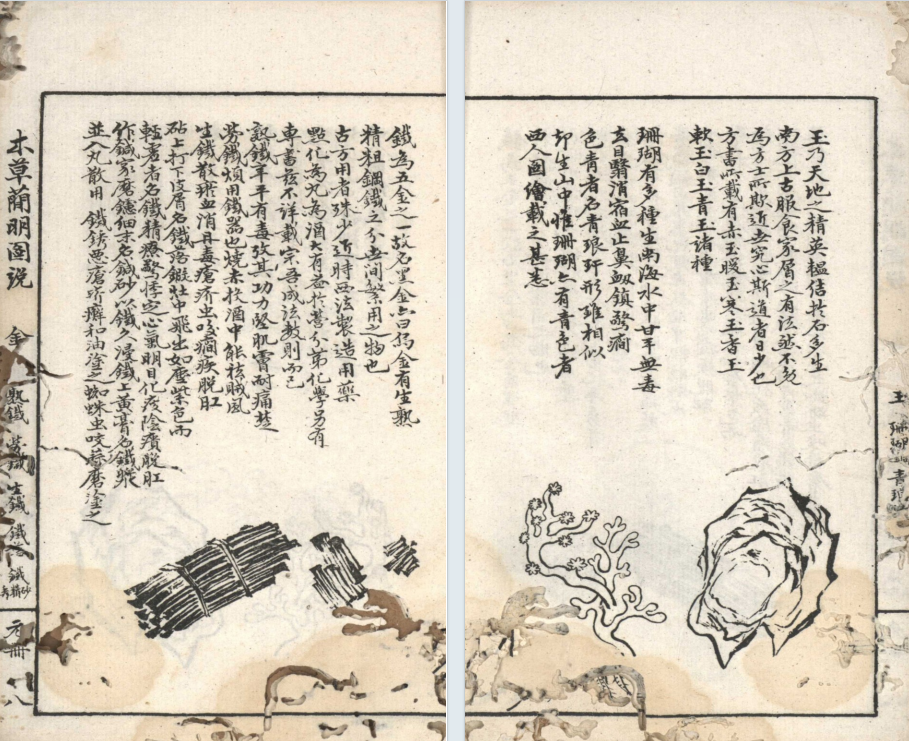 玉 珊瑚 青琅
玉乃天地之精英扵石多生
南方上古服食家屑之有法然不免
為方士所欺近世究心斯道者日少也
方書所載有赤玉暖玉寒玉香玉
軟玉白玉青玉諸種
珊瑚有多種生南海水中甘平無毒
去目翳消宿血止鼻衂鎮驚癎
色青者名青琅玕形雖相似
却生山中惟珊瑚亦有青色者
西人圖繪載之甚悉
鐵為五金之一故名黑金亦曰烏金有生熟
精粗鋼鐵之分世間繁用之物也
古方用者殊少近時西法製造用藥
點化為丸為酒大有益扵營分第化學另有
專書茲不詳載吾成法數則而已
熟鐵辛平有毒其功力堅肌膚耐痛楚
勞鐵煩用鐵器也燒赤投酒中能祛賊風
生鐵散瘀血消丹毒瘡疥虫咬癎疾脫肛
砧上打下皮屑名鐵落鍛灶中飛出如塵紫色而
輕虛者名鐵精療驚悸定心氣明目化痰陰㿉脫肛
作鍼家磨鑢細末名鍼砂以鐵久浸鐵上黃膏名鐵漿
並入丸散用 鐵銹惡瘡疥癬和油塗之蜘蛛虫咬蒜磨塗之
本草簡明圖說 金 熟鐵 勞鐵 生鐵 鐵落 鐵精 砂 元冊 八